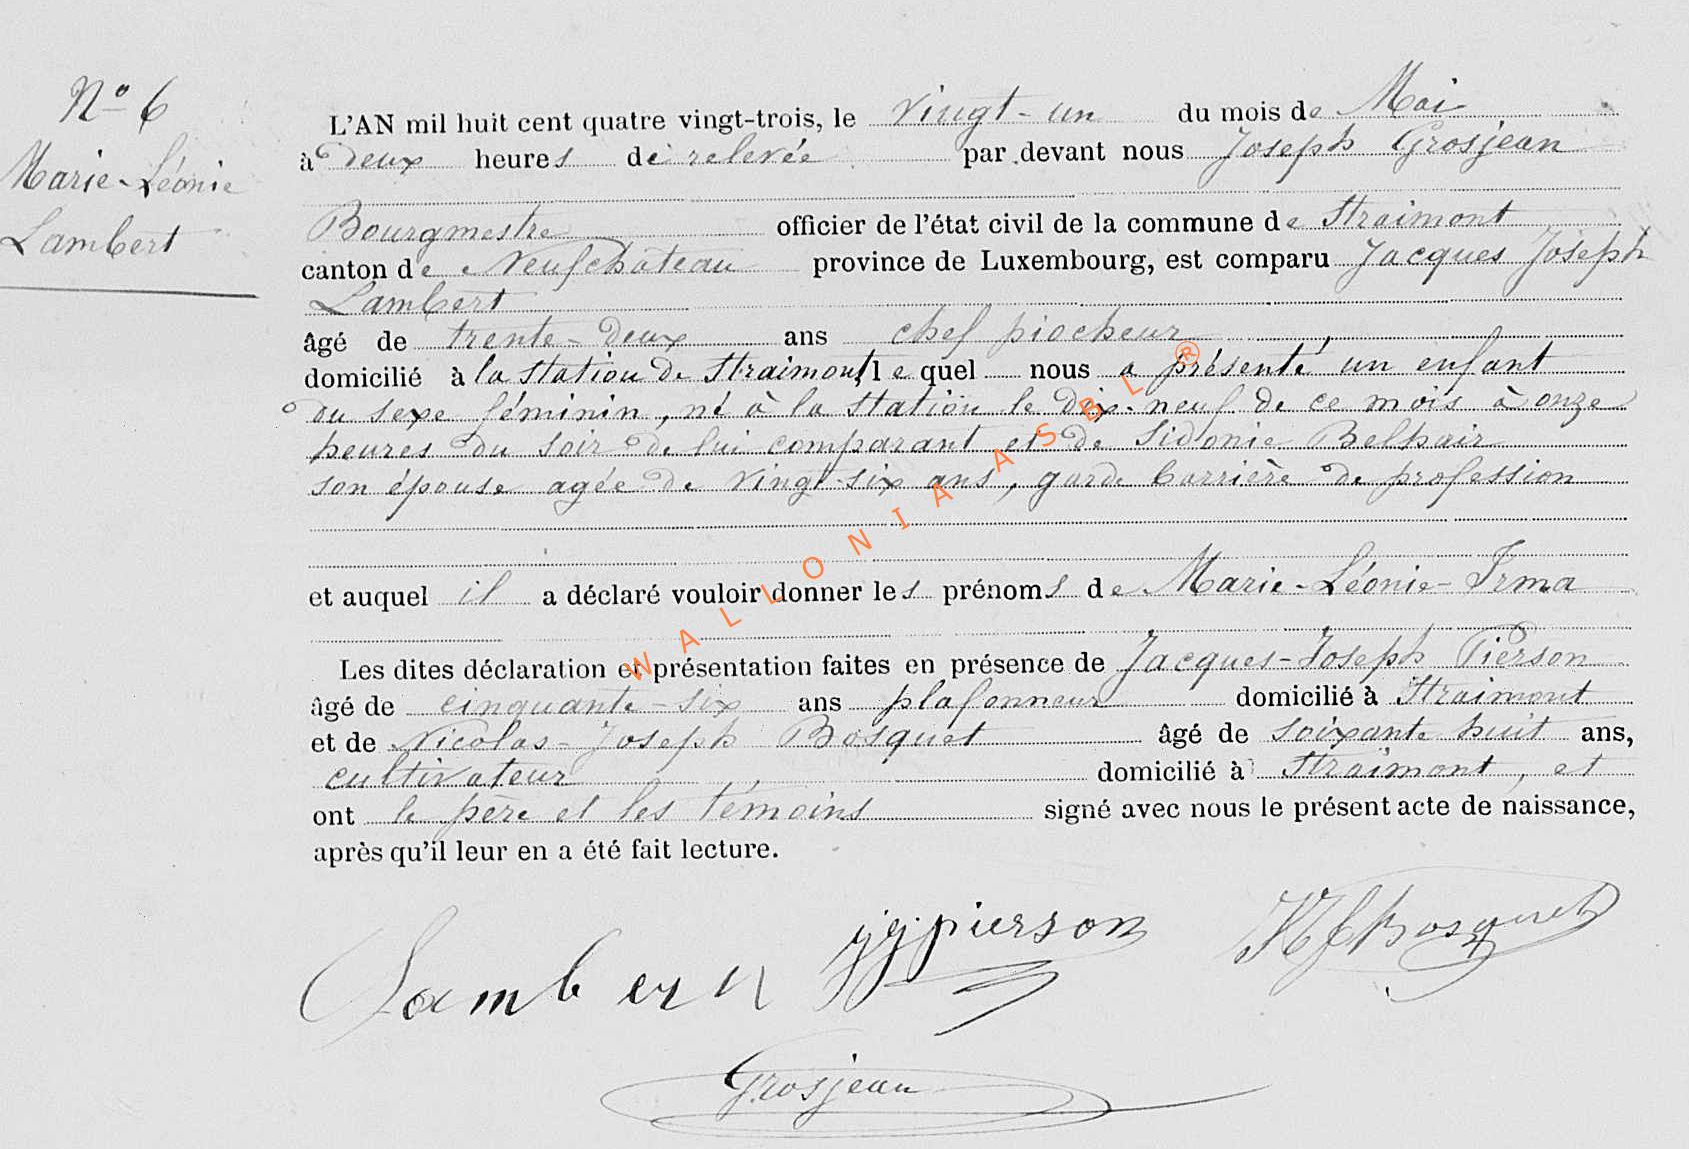 Nº 6
Marie-Léonie
Lambert
L'AN mil huit cent quatre vingt-trois, le vingt-un du mois de Mai
à deux heures de relevée par devant nous Joseph Grosjean
Bourgmestre officier de l'état civil de la commune de Straimont
canton de Neufchateau province de Luxembourg, est comparu Jacques Joseph
Lambert
âgé de trente-deux ans chef piocheur,
domicilié à la station de Straimont, le quel nous a présenté un enfant
du sexe féminin, né à la station le dix-neuf de ce mois à onze
heures du soir de lui comparant et de Sidonie Belhair
son épouse agée de vingt-six ans, garde barrière de profession
et auquel il a déclaré vouloir donner les prénoms de Marie-Léonie-Irma
Les dites déclaration et présentation faites en présence de Jacques-Joseph Pierson
âgé de cinquante-six ans plafonneur domicilié à Straimont
et de Nicolas-Joseph Bosquet âgé de soixante huit ans,
cultivateur, domicilié à Straimont, et
ont le père et les témoins signé avec nous le présent acte de naissance,
après qu'il leur en a été fait lecture.
Lambert jjpierson NJBosquet
Grosjean
WALLONIA ASBL ®